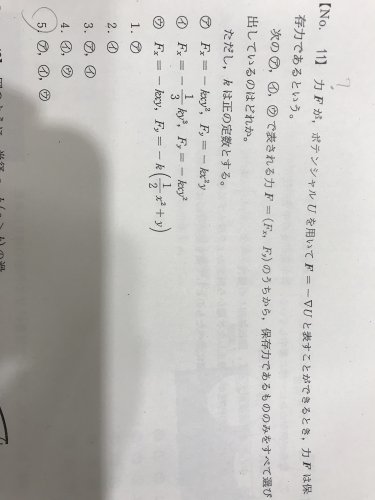 ?
【No. 11】 力Fが，ポテンシャルUを用いてF＝－∇Uと表すことができるとき，力Fは保
存力であるという。
次の㋐，㋑，㋒で表される力F＝(Fx，Fy)のうちから，保存力であるもののみをすべて選び
出しているのはどれか。
ただし，kは正の定数とする。
㋐ Fx＝－kxy²，Fy＝－kx²y
㋑ Fx＝－1/3 ky³，Fy＝－kxy²
㋒ Fx＝－kxy，Fy＝－k(1/2 x²＋y)
1．㋐
2．㋑
3．㋐，㋑
4．㋑，㋒
5．㋐，㋑，㋒